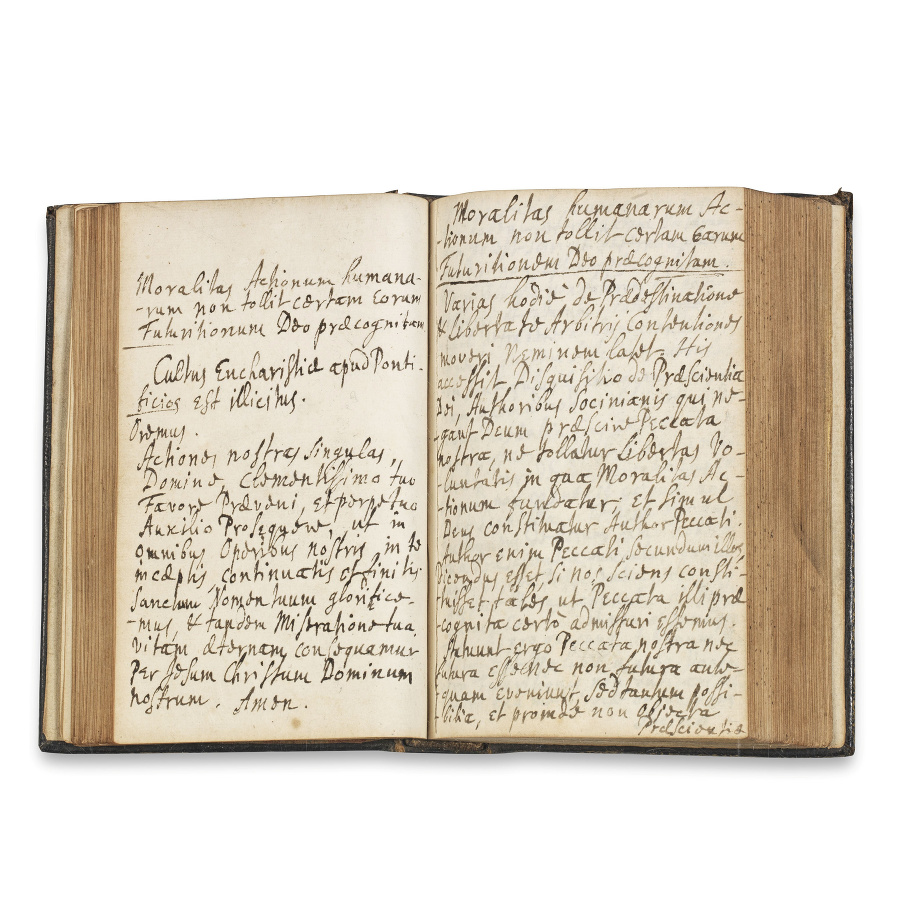 Moralitas Actionum humana-
-rum non tollit certam Eorum
Futuritionum Deo præcognitam
Cultus Eucharistiæ apud Ponti-
ficios Est illicitus.
Oremus.
Actiones nostras singulas,
Domine, Clementissimo tuo
Favore Præveni, et perpetuo
Auxilio Prosequere, ut in
omnibus Operibus nostris in te
incæptis continuatis et finitis
Sanctum Nomen tuum glorifice-
-mus, & tandem Miseratione tua
vitam æternam consequamur
Per Jesum Christum Dominum
nostrum. Amen.
Moralitas humanarum Ac-
-tionum non tollit certam Earum
Futuritionem Deo præcognitam.
Varias hodiè de Prædestinatione
& Libertate Arbitrij Contentiones
moveri Neminem latet. His
accessit Disquisitio de Præscientia
Dei, Authoribus Socinianis qui ne-
-gant Deum præscire Peccata
nostra, ne tollatur Libertas Vo-
-luntatis in qua Moralitas Ac-
-tionum fundatur; et simul
Deus constituatur Author Peccati.
Author enim Peccati secundum illos,
Dicendus esset si nos sciens consti-
tuisset tales ut Peccata illi præ
-cognita certo admissuri essemus.
Statuunt ergo Peccata nostra nec
futura esse nec non futura ante-
quam eveniunt, sed tantum possi-
-bilia, et proinde non objecta
Præscientiæ